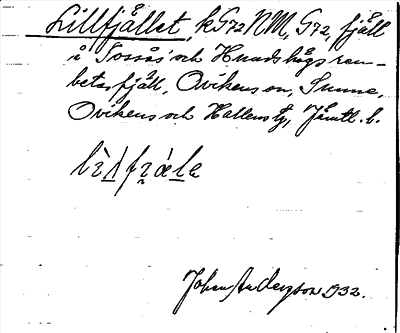 Lillfjället, k G72 NM, G72, fjäll
i Sossås och Hundshögs ren-
betesfjäll, Ovikens sn, Sunne,
Ovikens och Hallens tg, Jämtl. l.
Johan Anderzson 1932.